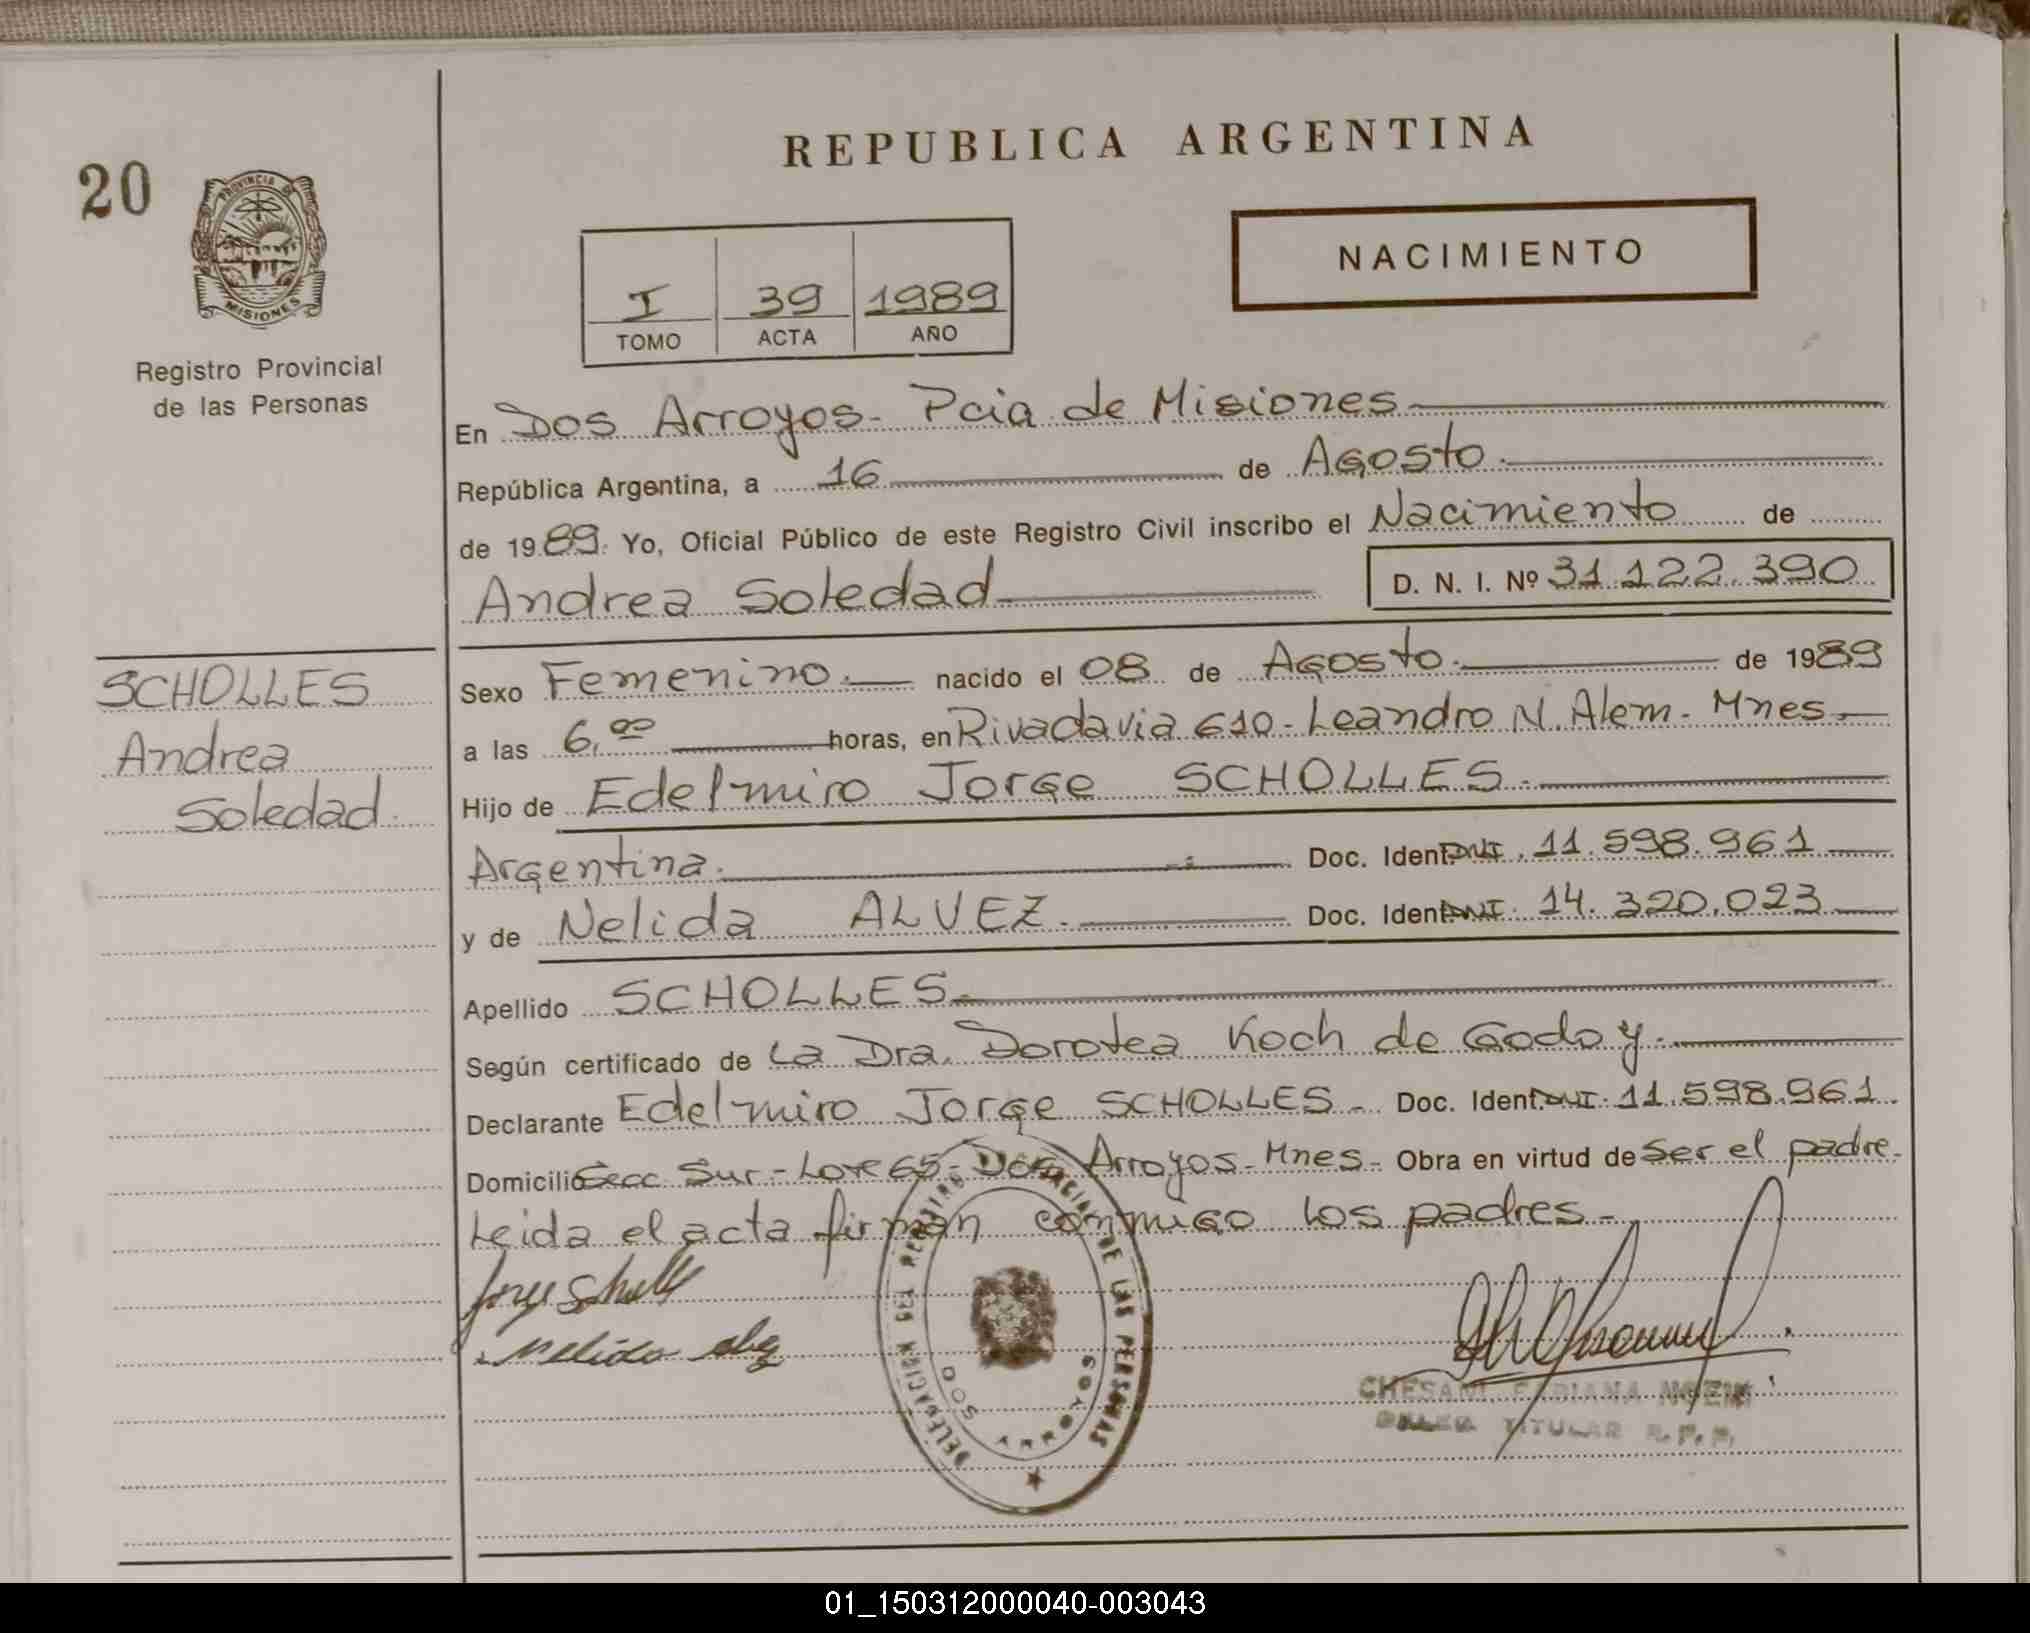 REPUBLICA ARGENTINA
20
PROVINCIA DE
MISIONES
Registro Provincial
de las Personas
NACIMIENTO
I 39 1989
TOMO ACTA AÑO
En Dos Arroyos- Pcia de Misiones
República Argentina, a 16 de Agosto.
de 1989. Yo, Oficial Público de este Registro Civil inscribo el Nacimiento de
Andrea Soledad D. N. I. Nº 31.122.390
SCHOLLES
Andrea
Soledad.
Sexo Femenino. nacido el 08 de Agosto. de 1989
a las 6,00 horas, en Rivadavia 610- Leandro N. Alem- Mnes-
Hijo de Edelmiro Jorge SCHOLLES.
Argentina. Doc. Ident. DNI. 11.598.961
y de Nelida ALVEZ. Doc. Ident. DNI. 14.320.023
Apellido SCHOLLES-
Según certificado de La Dra. Dorotea Koch de Godoy.
Declarante Edelmiro Jorge SCHOLLES- Doc. Ident. DNI. 11.598.961.
Domicilio Secc Sur- Lote 65- Dos Arroyos- Mnes- Obra en virtud de ser el padre-
Leida el acta firman conmigo los padres-
Jorge
Nelida
DELEGACION DEL REGISTRO PROVINCIAL DE LAS PERSONAS
DOS ARROYOS
FABIANA NOEMI
TITULAR R. P. P.
01_150312000040-003043